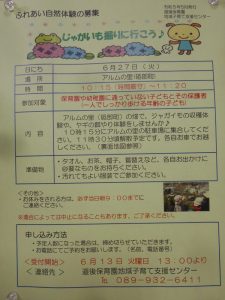 ふれあい自然体験の募集
じゃがいも掘りに行こう♪
日にち 6月27日（火）
場所 アルムの里(砥部町)
時間 10:15(時間厳守)～11:20
参加対象 保育園や幼稚園に通っていない子どもとその保護者
一人でしっかり歩ける年齢の子ども
内容 アルムの里（砥部町）の畑で、ジャガイモの収穫体
験や、ヤギの餌やり体験をしませんか？
10時15分にアルムの里の駐車場に集合してくださ
い。11時30分頃解散予定です。各自お車でお越
しください。（裏面地図参照）
準備物
・タオル、お茶、帽子、着替えなど、各自お出かけに
必要なものをお持ちください。
・汚れてもよい服装でご参加ください。
《その他》
・お休みをされる方は、必ず当日朝9：00までに
ご連絡ください。
※場合によっては中止になることもあります。ご了承ください。
申し込み方法
・予定人数になった場合は、締め切らせていただきます。
・お電話にてご予約をお願いします。（名前、電話番号）
《受付開始》 6月13日 火曜日 13:00より
《連絡先》 道後保育園地域子育て支援センター
TEL 089-932-6411